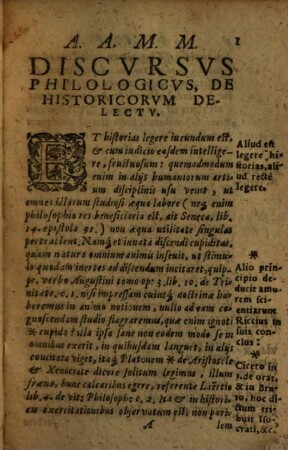 A. A. M. M. 1
DISCVRSVS
PHILOLOGICVS, DE
HISTORICORVM DE-
LECTV.
ET historias legere iucundum est,
& cum iudicio easdem intellige-
re, fructuosum: quemadmodum
enim in alijs humaniorum arti-
um disciplinis usu venit, ut
omnes illarum studiosi æquo labore (neq; enim
philosophia res beneficiaria est, ait Seneca, lib.
14. epistola 91.) non æqua utilitate singulas
pertractent. Namq; et innata discendi cupiditas,
quam natura omnium animis inseuit, ut stimu-
lo quodam inertes ad discendum incitaret, quip-
pe, verbo Augustini tomo op: 3. lib. 10. de Tri-
nitate, c. 1. nisi impressam cuiusq; doctrinæ
haberemus in animo notionem, nullo ad eam co-
gnoscendam studio flagraremus, quæ enim ignoti
* cupido? illa ipsa sane non eodem modo se in
omnibus exerit, in quibusdam languet, in alijs
concitata viget, itaq; Platonem * de Aristotele
& Xenocrate dicere solitum legimus, illum
fræno, hunc calcaribus egere, referente Laërtio
lib. 4. de vit: Philosoph: c. 2. Ita & in histori-
cis exercitationibus observatum est, non pari-
A lem
Aliud est
legere hi-
storias, ali-
ud recte
legere.
*
Alio prin-
cipio de-
ducit amo-
rem sci-
entiarum
Riccius in
suis con-
clus:
*
Cicero in
3. de orat.
& in Bru-
to, hoc di-
ctum tri-
buit Iso-
crati, &c.